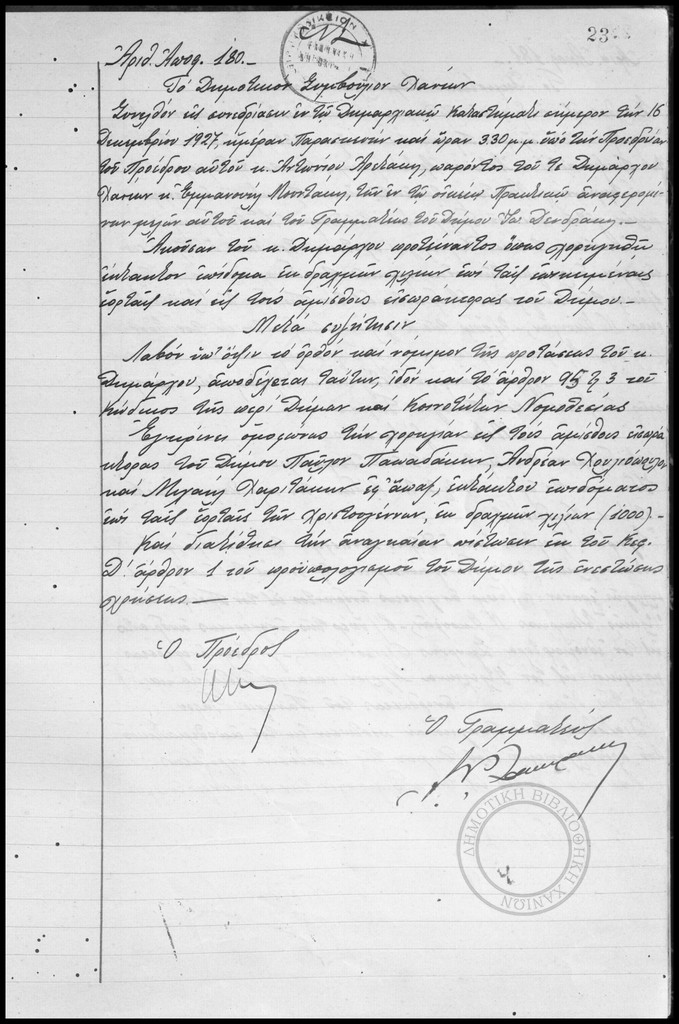 23
Ἀριθ. Ἀποφ. 180.-
Τὸ Δημοτικὸν Συμβούλιον Χανίων
Συνελθὸν εἰς συνεδρίασιν ἐν τῷ Δημαρχιακῷ Καταστήματι σήμερον τὴν 16
Δεκεμβρίου 1927, ἡμέραν Παρασκευὴν καὶ ὥραν 3.30 μ.μ. ὑπὸ τὴν Προεδρείαν
τοῦ Προέδρου αὐτοῦ κ. Ἀντωνίου παρόντος τοῦ τε Δημάρχου
Χανίων κ. Ἐμμανουὴλ Μουντάκη, τῶν ἐν τῷ οἰκείῳ Πρακτικῷ ἀναφερομέ-
νων μελῶν αὐτοῦ καὶ τοῦ Γραμματέως τοῦ Δήμου Ἰω Δενδράκη.-
Ἀκοῦσαν τοῦ κ. Δημάρχου προτείναντος ὅπως χορηγηθῇ
ἔκτακτον ἐπίδομα ἐκ δραχμῶν χιλίων ἐπὶ ταῖς ἐπικειμέναις
ἑορταῖς καὶ εἰς τοὺς ἀμίσθους εἰσπράκτορας τοῦ Δήμου.-
Μετὰ συζήτησιν
Λαβὸν ὑπ' ὄψιν τὸ ὀρθὸν καὶ νόμιμον τῆς προτάσεως τοῦ κ.
Δημάρχου, ἀποδέχεται ταύτην, ἰδὸν καὶ τὸ ἄρθρον 95 § 3 τοῦ
Κώδικος τῆς περὶ Δήμων καὶ Κοινοτήτων Νομοθεσίας
Ἐγκρίνει ὁμοφώνως τὴν χορηγίαν εἰς τοὺς ἀμίσθους εἰσπρά-
κτορας τοῦ Δήμου Παῦλον Παπαδάκην, Ἀνδρέαν
καὶ Μιχαὴλ Χαριτάκην ἐφ' ἅπαξ, ἐκτάκτου ἐπιδόματος
ἐπὶ ταῖς ἑορταῖς τῶν Χριστουγέννων, ἐκ δραχμῶν χιλίων (1000)-
Καὶ διατίθησι τὴν ἀναγκαίαν πίστωσιν ἐκ τοῦ Κεφ.
Δ' ἄρθρον 1 τοῦ προϋπολογισμοῦ τοῦ Δήμου τῆς ἐνεστώσης
χρήσεως.-
Ὁ Πρόεδρος
Ὁ Γραμματεὺς
ΔΗΜΟΤΙΚΗ ΒΙΒΛΙΟΘΗΚΗ ΧΑΝΙΩΝ